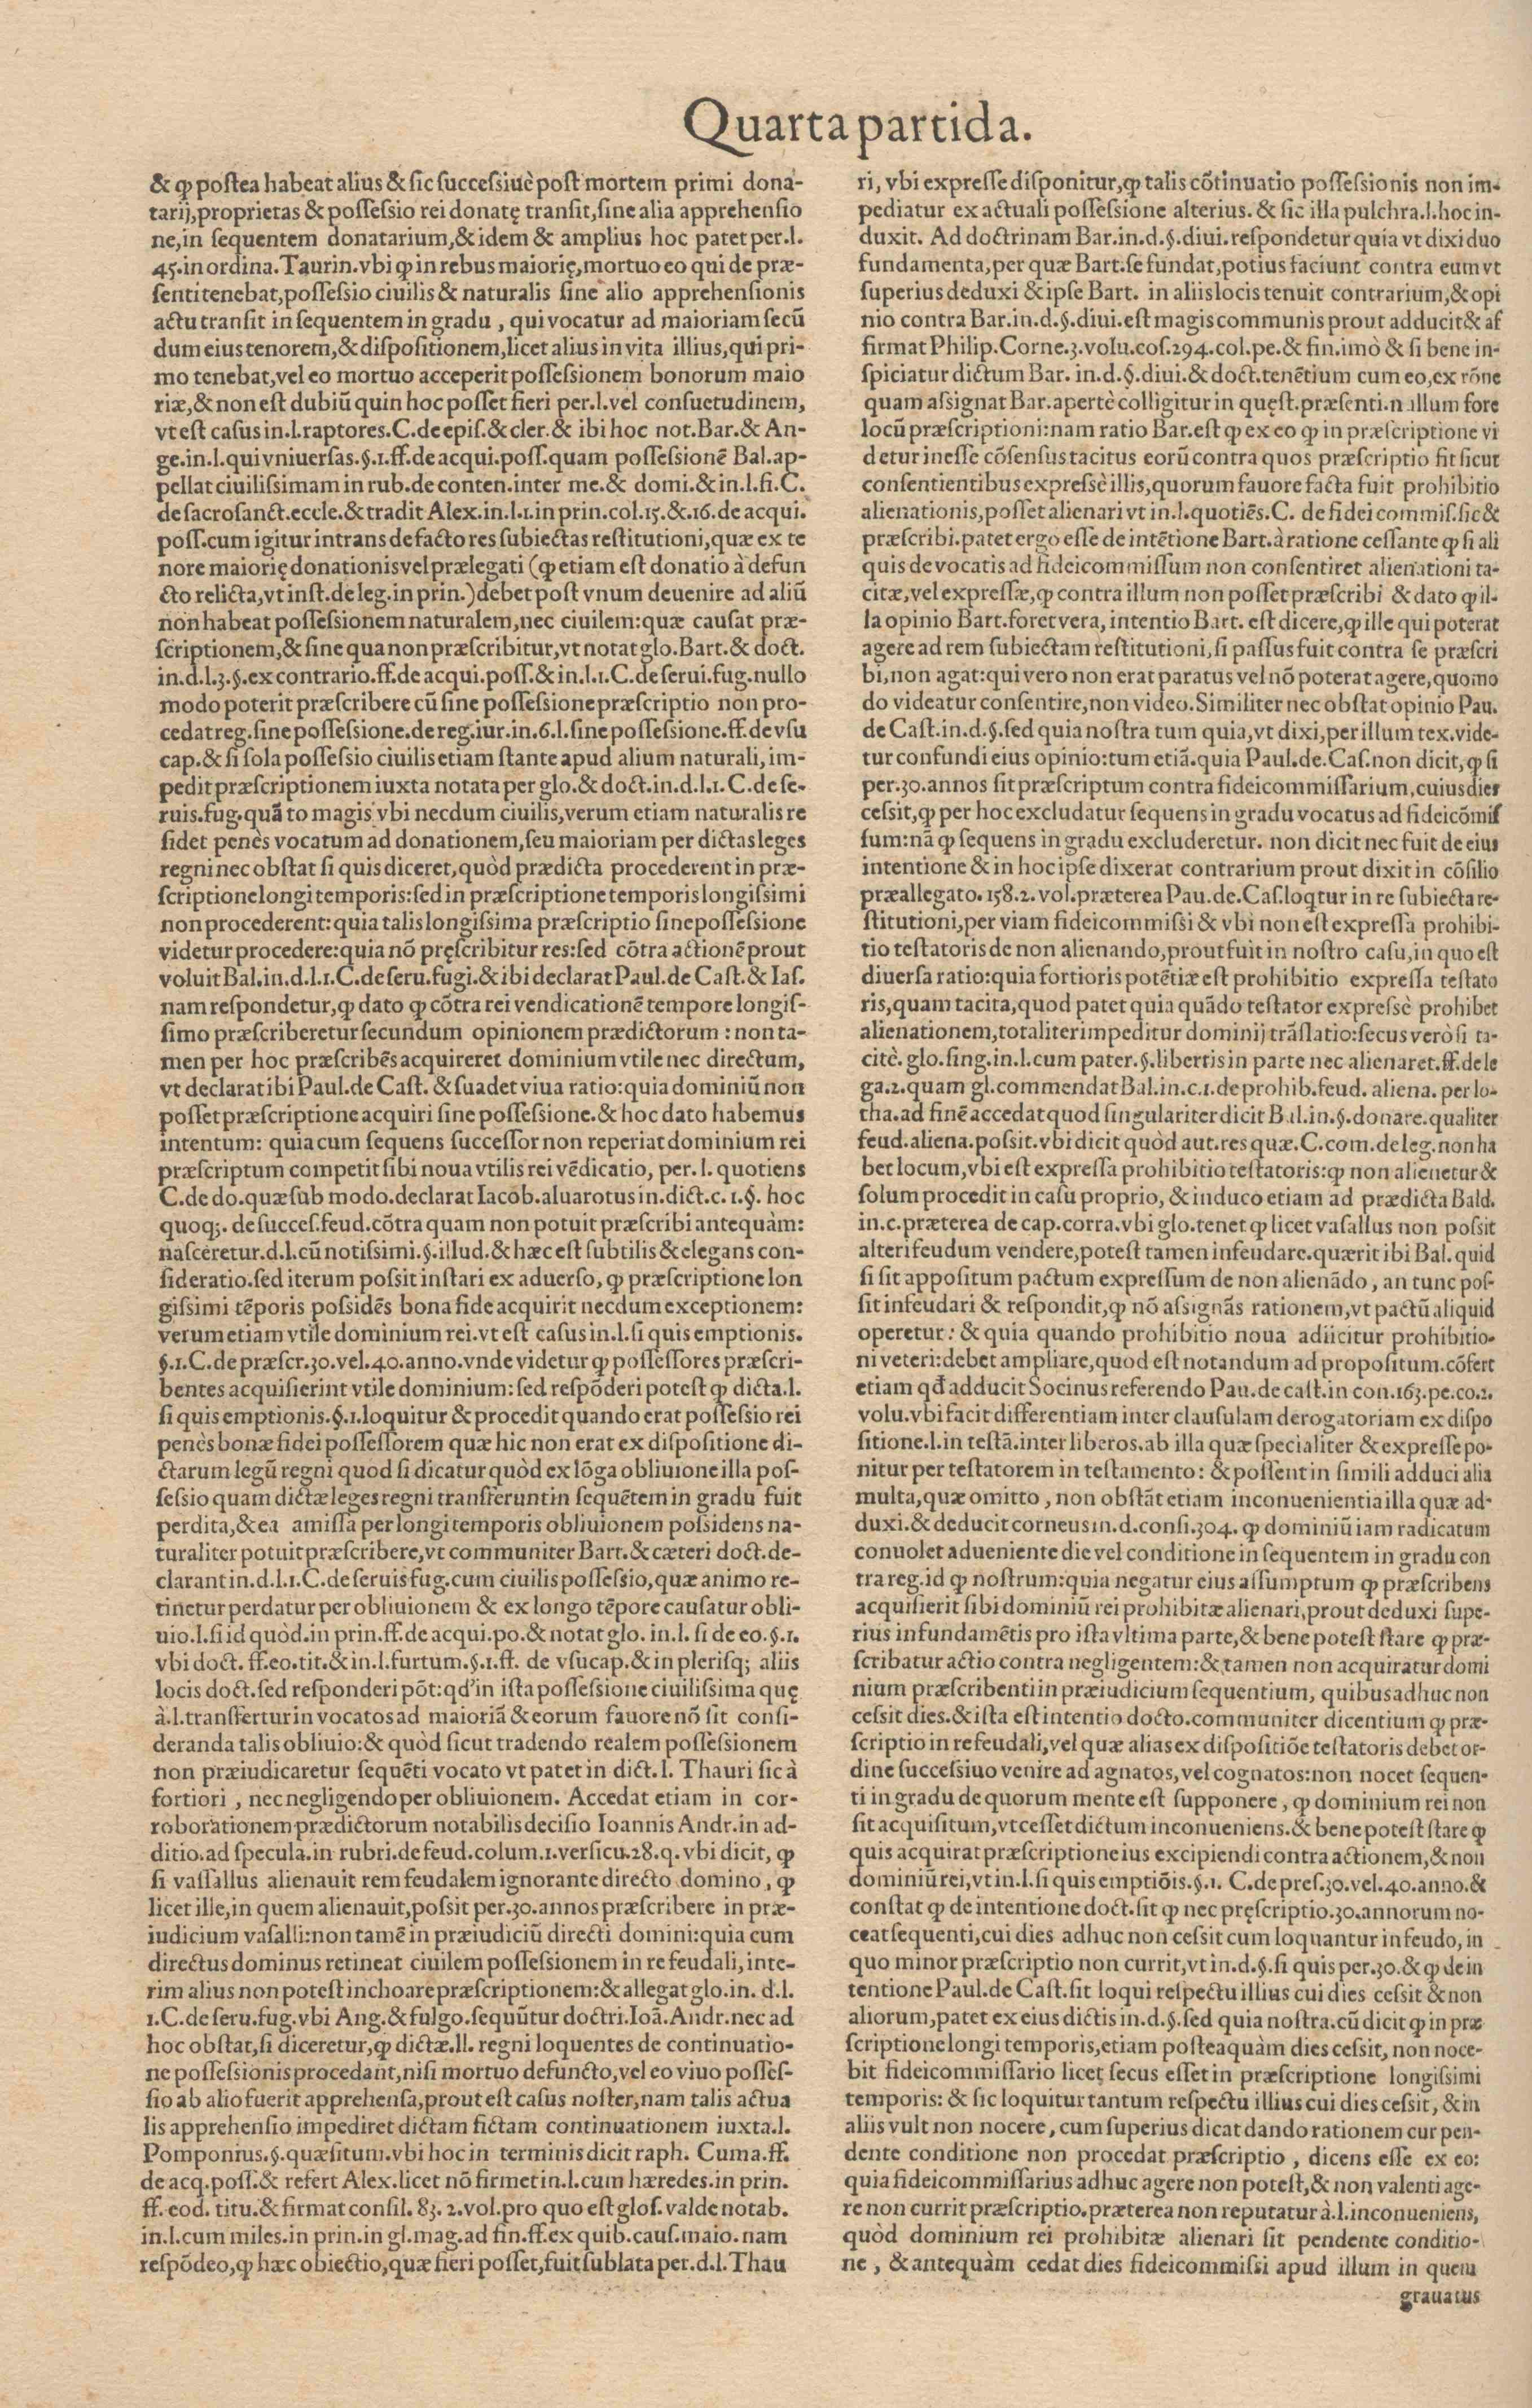 Quarta partida.
& ꝙ postea habeat alius & sic successiuè post mortem primi dona-
tarij, proprietas & possessio rei donatę transit, sine alia apprehensio
ne, in sequentem donatarium, & idem & amplius hoc patet per.l.
45.in ordina. Taurin. vbi ꝙ in rebus maiorię, mortuo eo qui de præ-
senti tenebat, possessio ciuilis & naturalis sine alio apprehensionis
actu transit in sequentem in gradu , qui vocatur ad maioriam secū
dum eius tenorem, & dispositionem, licet alius in vita illius, qui pri-
mo tenebat, vel eo mortuo acceperit possessionem bonorum maio
riæ, & non est dubiū quin hoc posset fieri per.l.vel consuetudinem,
vt est casus in.l.raptores.C.de epis.& cler.& ibi hoc not.Bar.& An-
ge.in.l.qui vniuersas.§.1.ff.de acqui.poss.quam possessionē Bal.ap-
pellat ciuilissimam in rub.de conten.inter me.& domi.& in.l.fi.C.
de sacrosanct.eccle.& tradit Alex.in.l.1.in prin.col.15.&.16.de acqui.
poss.cum igitur intrans de facto res subiectas restitutioni, quæ ex te
nore maiorię donationis vel prælegati (ꝙ etiam est donatio à defun
cto relicta, vt inst.de leg.in prin.) debet post vnum deuenire ad aliū
non habeat possessionem naturalem, nec ciuilem: quæ causat præ-
scriptionem, & sine qua non præscribitur, vt notat glo.Bart.& doct.
in.d.l.3.§.ex contrario.ff.de acqui.poss.& in.l.1.C.de serui.fug.nullo
modo poterit præscribere cū sine possessione præscriptio non pro-
cedat reg.sine possessione.de reg.iur.in.6.l.sine possessione.ff.de vsu
cap.& si sola possessio ciuilis etiam stante apud alium naturali, im-
pedit præscriptionem iuxta notata per glo.& doct.in.d.l.1.C.de se-
ruis.fug.quā to magis vbi necdum ciuilis, verum etiam naturalis re
sidet penès vocatum ad donationem, seu maioriam per dictas leges
regni nec obstat si quis diceret, quòd prædicta procederent in præ-
scriptione longi temporis: sed in præscriptione temporis longissimi
non procederent: quia talis longissima præscriptio sine possessione
videtur procedere: quia nō pręscribitur res: sed cōtra actionē prout
voluit Bal.in.d.l.1.C.de seru.fugi.& ibi declarat Paul.de Cast.& Ias.
nam respondetur, ꝙ dato ꝙ cōtra rei vendicationē tempore longis-
simo præscriberetur secundum opinionem prædictorum : non ta-
men per hoc præscribēs acquireret dominium vtile nec directum,
vt declarat ibi Paul.de Cast. & suadet viua ratio: quia dominiū non
posset præscriptione acquiri sine possessione.& hoc dato habemus
intentum: quia cum sequens successor non reperiat dominium rei
præscriptum competit sibi noua vtilis rei vēdicatio, per.l. quotiens
C.de do.quæ sub modo.declarat Iacob.aluarotus in.dict.c.1.§. hoc
quoq;. de succes.feud.cōtra quam non potuit præscribi antequàm:
nasceretur.d.l.cū notissimi.§.illud.& hæc est subtilis & elegans con-
sideratio.sed iterum possit instari ex aduerso, ꝙ præscriptione lon
gissimi tēporis possidēs bona fide acquirit necdum exceptionem:
verum etiam vtile dominium rei.vt est casus in.l.si quis emptionis.
§.1.C.de præscr.30.vel.40.anno.vnde videtur ꝙ possessores præscri-
bentes acquisierint vtile dominium: sed respōderi potest ꝙ dicta.l.
si quis emptionis.§.1.loquitur & procedit quando erat possessio rei
penès bonæ fidei possessorem quæ hic non erat ex dispositione di-
ctarum legū regni quod si dicatur quòd ex lōga obliuione illa pos-
sessio quam dictæ leges regni transferunt in sequētem in gradu fuit
perdita, & ea amissa per longi temporis obliuionem possidens na-
turaliter potuit præscribere, vt communiter Bart.& cæteri doct.de-
clarant in.d.l.1.C.de seruis fug.cum ciuilis possessio, quæ animo re-
tinetur perdatur per obliuionem & ex longo tēpore causatur obli-
uio.l.si id quòd.in prin.ff.de acqui.po.& notat glo. in.l. si de eo.§.1.
vbi doct. ff.eo.tit.& in.l.furtum.§.1.ff. de vsucap.& in plerisq; aliis
locis doct.sed responderi pōt: qd' in ista possessione ciuilissima quę
à.l.transfertur in vocatos ad maioriā & eorum fauore nō sit consi-
deranda talis obliuio: & quòd sicut tradendo realem possessionem
non præiudicaretur sequēti vocato vt patet in dict.l. Thauri sic à
fortiori , nec negligendo per obliuionem. Accedat etiam in cor-
roborationem prædictorum notabilis decisio Ioannis Andr.in ad-
ditio.ad specula.in rubri.de feud.colum.1.versicu.28.q.vbi dicit, ꝙ
si vassallus alienauit rem feudalem ignorante directo domino, ꝙ
licet ille, in quem alienauit, possit per.30.annos præscribere in præ-
iudicium vasalli: non tamē in præiudiciū directi domini: quia cum
directus dominus retineat ciuilem possessionem in re feudali, inte-
rim alius non potest inchoare præscriptionem: & allegat glo.in. d.l.
1.C.de seru.fug.vbi Ang.& fulgo.sequūtur doctri.Ioā.Andr.nec ad
hoc obstat, si diceretur, ꝙ dictæ.ll. regni loquentes de continuatio-
ne possessionis procedant, nisi mortuo defuncto, vel eo viuo posses-
sio ab alio fuerit apprehensa, prout est casus noster, nam talis actua
lis apprehensio impediret dictam fictam continuationem iuxta.l.
Pomponius.§.quæsitum.vbi hoc in terminis dicit raph. Cuma.ff.
de acq.poss.& refert Alex.licet nō firmet in.l.cum hæredes.in prin.
ff.eod. titu.& firmat consil. 83. 2.vol.pro quo est glos.valde notab.
in.l.cum miles.in prin.in gl.mag.ad fin.ff.ex quib.caus.maio. nam
respōdeo, ꝙ hæc obiectio, quæ fieri posset, fuit sublata per.d.l.Thau
ri, vbi expresse disponitur, ꝙ talis cōtinuatio possessionis non im-
pediatur ex actuali possessione alterius. & sic illa pulchra.l.hoc in-
duxit. Ad doctrinam Bar.in.d.§.diui.respondetur quia vt dixi duo
fundamenta, per quæ Bart.se fundat, potius faciunt contra eum vt
superius deduxi & ipse Bart. in aliis locis tenuit contrarium, & opi
nio contra Bar.in.d.§.diui.est magis communis prout adducit & af
firmat Philip.Corne.3.volu.cos.294.col.pe.& fin.imò & si bene in-
spiciatur dictum Bar. in.d.§.diui.& doct.tenētium cum eo, ex rōne
quam assignat Bar.apertè colligitur in quęst.præsenti.nullum fore
locū præscriptioni: nam ratio Bar.est ꝙ ex eo ꝙ in præscriptione vi
detur inesse cōsensus tacitus eorū contra quos præscriptio fit sicut
consentientibus expressè illis, quorum fauore facta fuit prohibitio
alienationis, posset alienari vt in.l.quotiēs.C. de fidei commis.sic &
præscribi.patet ergo esse de intētione Bart.à ratione cessante ꝙ si ali
quis de vocatis ad fideicommissum non consentiret alienationi ta-
citæ, vel expressæ, ꝙ contra illum non posset præscribi & dato ꝙ il-
la opinio Bart.foret vera, intentio Bart. est dicere, ꝙ ille qui poterat
agere ad rem subiectam restitutioni, si passus fuit contra se præscri
bi, non agat: qui vero non erat paratus vel nō poterat agere, quomo
do videatur consentire, non video. Similiter nec obstat opinio Pau.
de Cast.in.d.§.sed quia nostra tum quia, vt dixi, per illum tex.vide-
tur confundi eius opinio: tum etiā.quia Paul.de.Cas.non dicit, ꝙ si
per.30.annos sit præscriptum contra fideicommissarium, cuius dies
cessit, ꝙ per hoc excludatur sequens in gradu vocatus ad fideicōmis
sum: nā ꝙ sequens in gradu excluderetur. non dicit nec fuit de eius
intentione & in hoc ipse dixerat contrarium prout dixit in cōsilio
præallegato.158.2.vol.præterea Pau.de.Cas.loqtur in re subiecta re-
stitutioni, per viam fideicommissi & vbi non est expressa prohibi-
tio testatoris de non alienando, prout fuit in nostro casu, in quo est
diuersa ratio: quia fortioris potētiæ est prohibitio expressa testato
ris, quam tacita, quod patet quia quādo testator expressè prohibet
alienationem, totaliter impeditur dominij trāslatio: secus verò si ta-
citè. glo.sing.in.l.cum pater.§.libertis in parte nec alienaret.ff.de le
ga.2.quam gl.commendat Bal.in.c.1.de prohib.feud. aliena. per lo-
tha.ad finē accedat quod singulariter dicit Bal.in.§.donare.qualiter
feud.aliena.possit.vbi dicit quòd aut.res quæ.C.com.de leg.non ha
bet locum, vbi est expressa prohibitio testatoris: ꝙ non alienetur &
solum procedit in casu proprio, & induco etiam ad prædicta Bald.
in.c.præterea de cap.corra.vbi glo.tenet ꝙ licet vasallus non possit
alteri feudum vendere, potest tamen infeudare.quærit ibi Bal.quid
si sit appositum pactum expressum de non alienādo, an tunc pos-
sit infeudari & respondit, ꝙ nō assignās rationem, vt pactū aliquid
operetur: & quia quando prohibitio noua adiicitur prohibitio-
ni veteri: debet ampliare, quod est notandum ad propositum.cōfert
etiam qđ adducit Socinus referendo Pau.de cast.in con.163.pe.co.2.
volu.vbi facit differentiam inter clausulam derogatoriam ex dispo
sitione.l.in testā.inter liberos.ab illa quæ specialiter & expresse po-
nitur per testatorem in testamento: & possent in simili adduci alia
multa, quæ omitto , non obstāt etiam inconuenientia illa quæ ad-
duxi.& deducit corneus in.d.consi.304. ꝙ dominiū iam radicatum
conuolet adueniente die vel conditione in sequentem in gradu con
tra reg.id ꝙ nostrum: quia negatur eius assumptum ꝙ præscribens
acquisierit sibi dominiū rei prohibitæ alienari, prout deduxi supe-
rius in fundamētis pro ista vltima parte, & bene potest stare ꝙ præ-
scribatur actio contra negligentem: & tamen non acquiratur domi
nium præscribenti in præiudicium sequentium, quibus adhuc non
cessit dies.& ista est intentio docto.communiter dicentium ꝙ præ-
scriptio in re feudali, vel quæ alias ex dispositiōe testatoris debet or-
dine successiuo venire ad agnatos, vel cognatos: non nocet sequen-
ti in gradu de quorum mente est supponere , ꝙ dominium rei non
sit acquisitum, vt cesset dictum inconueniens.& bene potest stare ꝙ
quis acquirat præscriptione ius excipiendi contra actionem, & non
dominiū rei, vt in.l.si quis emptiōis.§.1. C.de pres.30.vel.40.anno.&
constat ꝙ de intentione doct.sit ꝙ nec pręscriptio.30.annorum no-
ceat sequenti, cui dies adhuc non cessit cum loquantur in feudo, in
quo minor præscriptio non currit, vt in.d.§.si quis per.30.& ꝙ de in
tentione Paul.de Cast.sit loqui respectu illius cui dies cessit & non
aliorum, patet ex eius dictis in.d.§.sed quia nostra.cū dicit ꝙ in præ
scriptione longi temporis, etiam posteaquàm dies cessit, non noce-
bit fideicommissario licet secus esset in præscriptione longissimi
temporis: & sic loquitur tantum respectu illius cui dies cessit, & in
aliis vult non nocere, cum superius dicat dando rationem cur pen-
dente conditione non procedat præscriptio , dicens esse ex eo:
quia fideicommissarius adhuc agere non potest, & non valenti age-
re non currit præscriptio.præterea non reputatur à.l.inconueniens,
quòd dominium rei prohibitæ alienari sit pendente conditio-
ne , & antequàm cedat dies fideicommissi apud illum in quem
grauatus